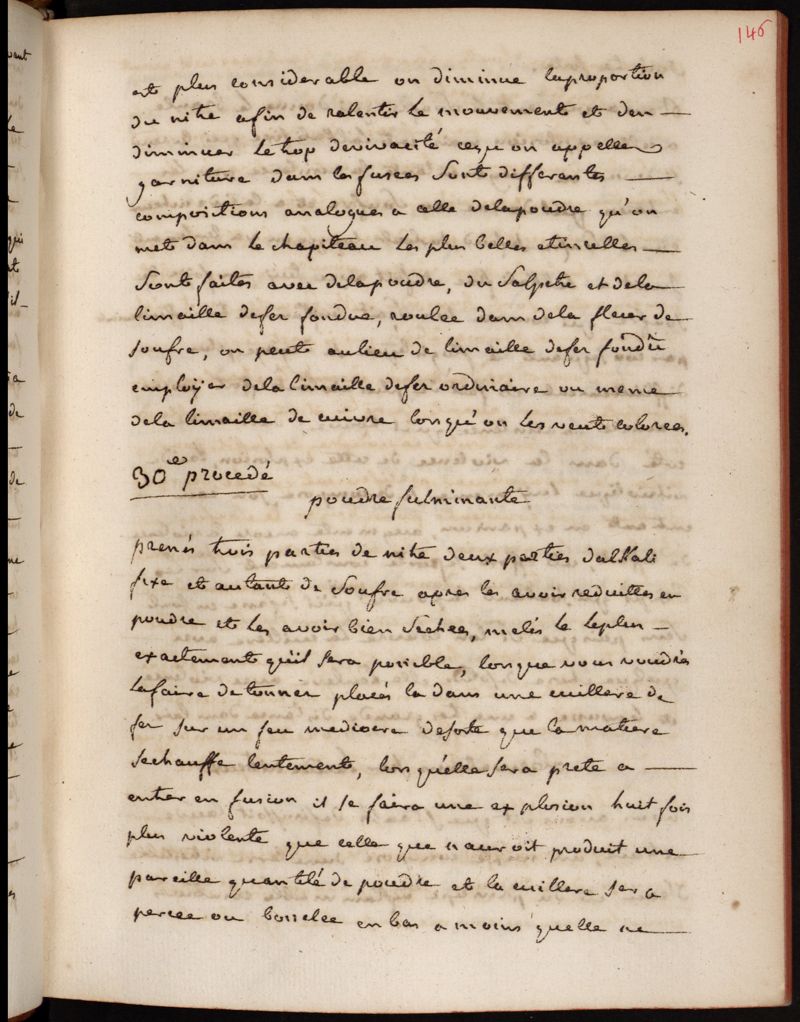 146
est plus considerable on diminue laproportion
du nitre afin de ralentir le mouvement et den —
diminuer le trop devivacité ceque on appelle
garniture dans les fusees sont differentes —
compositions analogues a celle delapoudre qu'on
met dans le chapiteau les plus belles etincelles —
sont faites avec delapoudre, du salpetre et dela
limaille defer fondue, roulee dans dela fleur de
soufre, on peut aulieu de limaille defer fondüe
employer dela limaille defer ordinaire ou meme
dela limaille de cuivre lorsqu'on les veut colorees.
30e procedé
poudre fulminante
prenés trois parties de nitre deux parties dalkali
fixe et autant de soufre apres les avoir reduittes en
poudre et les avoir bien sechees, melés le leplus —
exactement qu'il sera possible, lorsque vous voudrés
lafaire detonner placés la dans une cuillere de
fer sur un feu mediocre desorte que la matiere
sechauffe lentement, lorsquelle sera prete a —
entrer en fusion il se faira une explosion huit fois
plus violente que celle que nauroit produit une
pareille quantité de poudre et la cuillere sera
percée ou bosselée en bas a moins quelle ne —